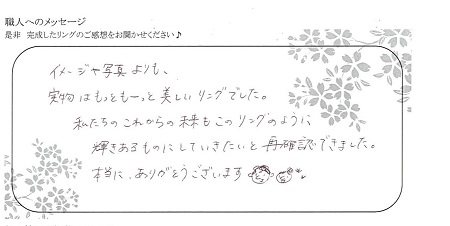 職人へのメッセージ
是非 完成したリングのご感想をお聞かせください♪
イメージや写真よりも、
実物はもっともーっと美しいリングでした。
私たちのこれからの未来もこのリングのように
輝きあるものにしていきたいと再確認できました。
本当に、ありがとうございます